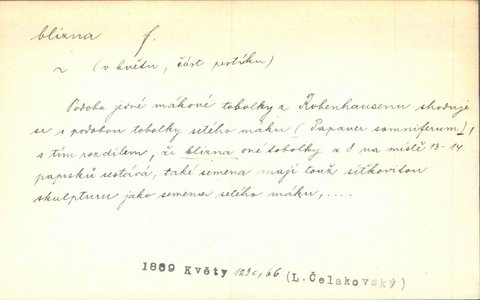 blizna f.
~ (v květu, část pestíku)
Podoba jedné mákové tobolky z Robenhausenu shoduje
se s podobou tobolky setého máku (Papaver somniferum),
s tím rozdílem, že blizna oné tobolky z 8 na místě 13-14
paprsků sestává, také semena mají touž síťkovitou
skulpturu jako semena setého máku, ....
1869 Květy 123c, 66 (L. Čelakovský)